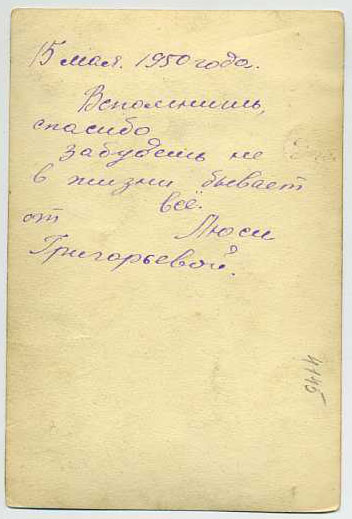 15 мая. 1950 года.
Вспомнишь,
спасибо
забудешь не
в жизни бывает
всё.
от Люси
Григорьевой.